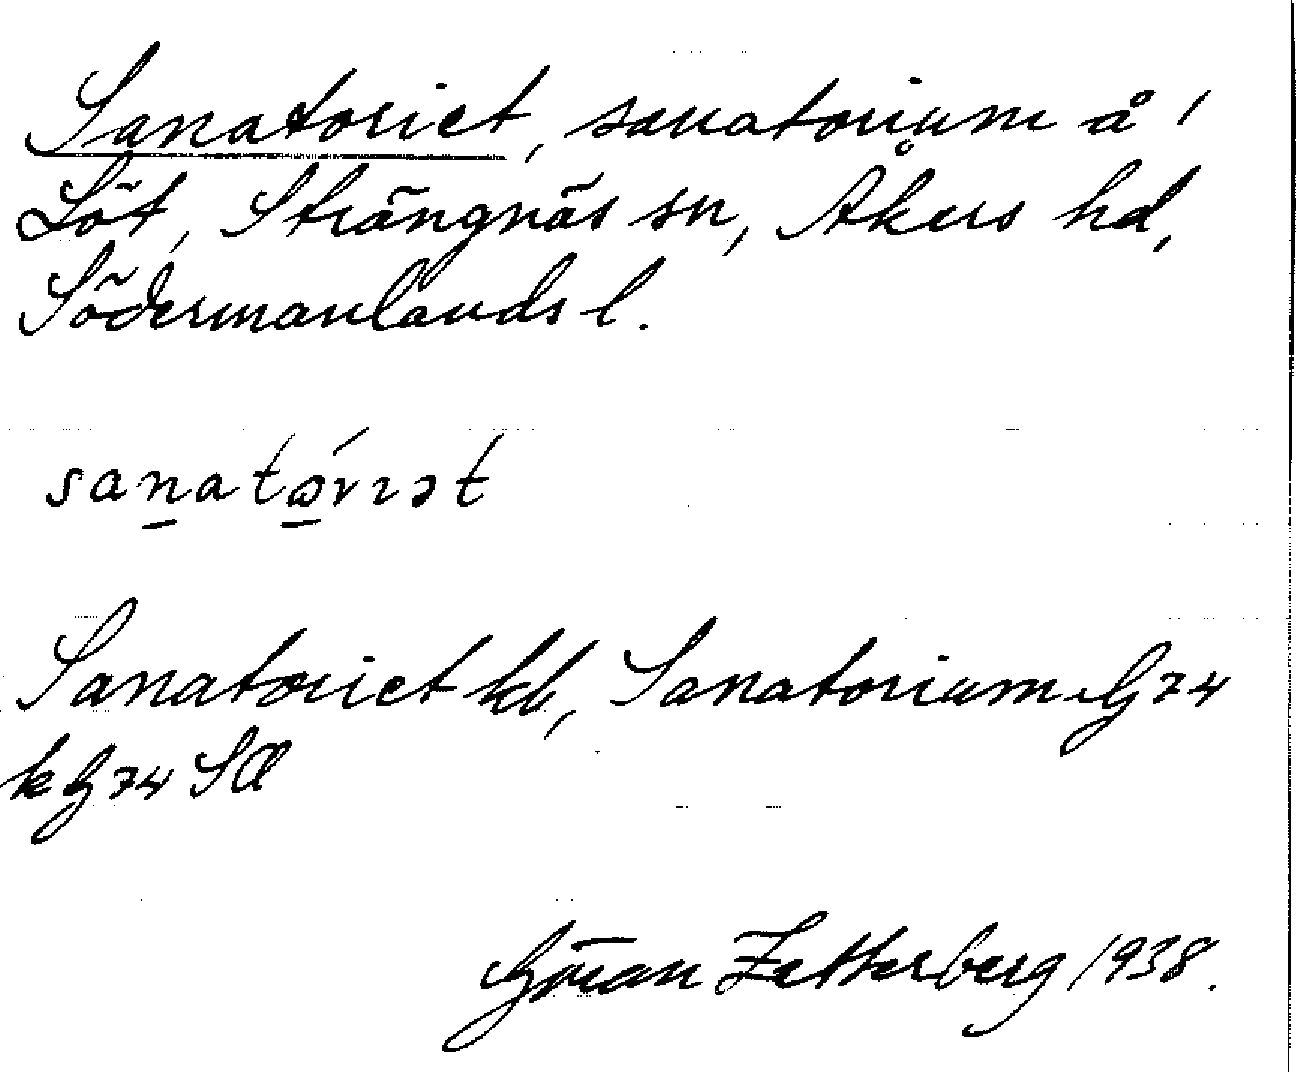 Sanatoriet, sanatorium å
Löt, Strängnäs sn, Åkers hd,
Södermanlands l.
sanatǿrɪət
Sanatoriet kb, Sanatorium G74
k G74 SÆ
Göran Zetterberg 1938.